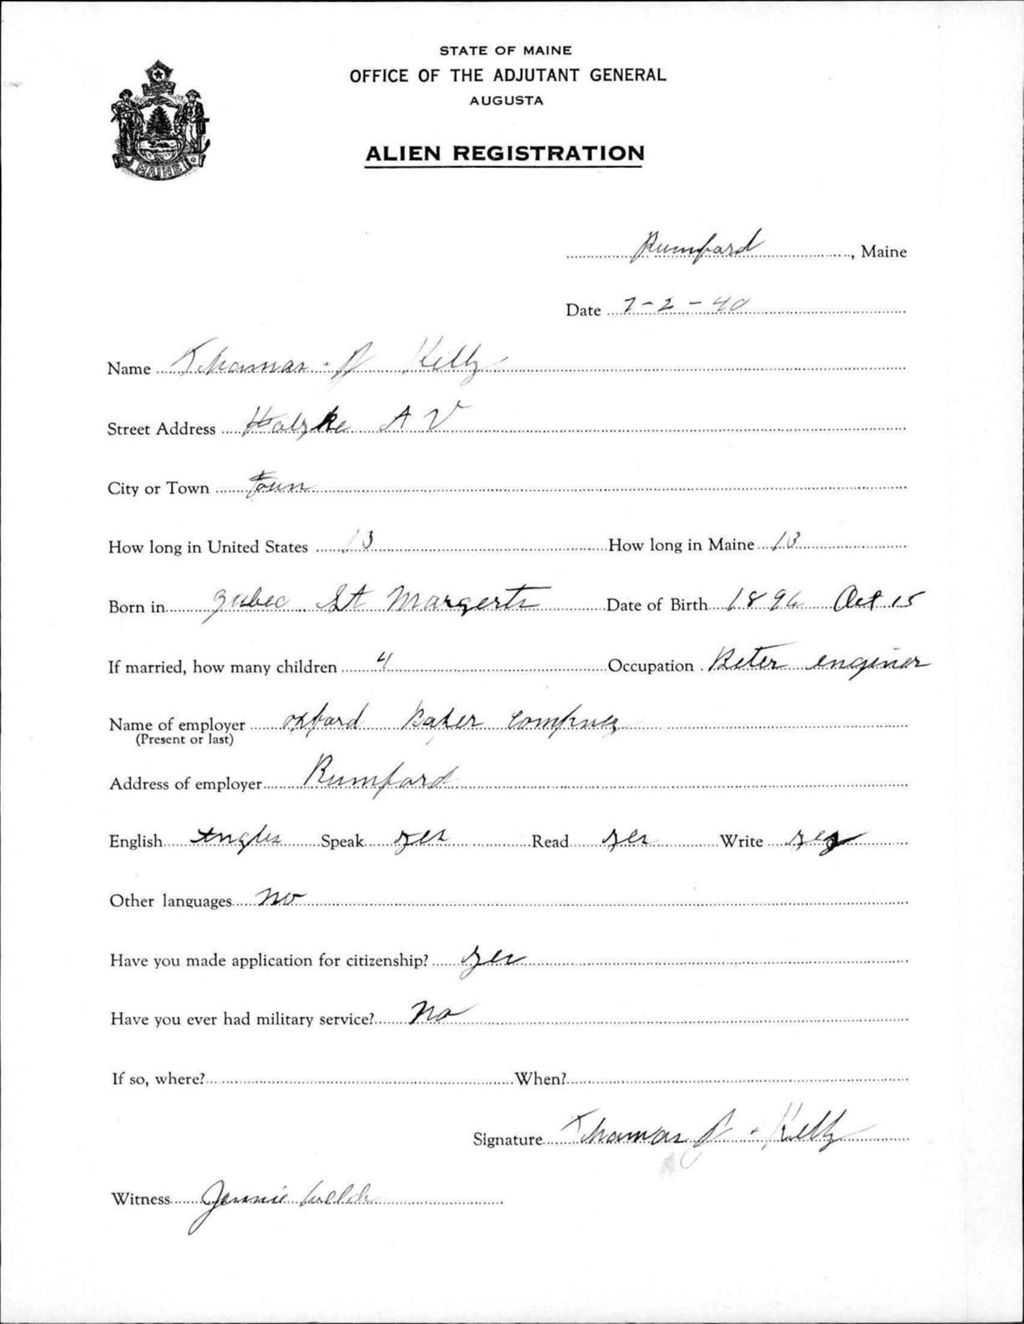 STATE OF MAINE
OFFICE OF THE ADJUTANT GENERAL
AUGUSTA
ALIEN REGISTRATION
MAINE
Rumford, Maine
Date 7-2-40
Name Thomas Kelly
Street Address AV
City or Town Town
How long in United States 13 How long in Maine 13
Born in Qubec St Margerts Date of Birth 1896 Oct 15
If married, how many children 4 Occupation Beter enginer
Name of employer oxford Paper Compney
(Present or last)
Address of employer Rumford
English Angles Speak yes Read yes Write yes
Other languages no
Have you made application for citizenship? yes
Have you ever had military service? No
If so, where? When?
Signature Thomas Kelly
Witness Jennie Welch